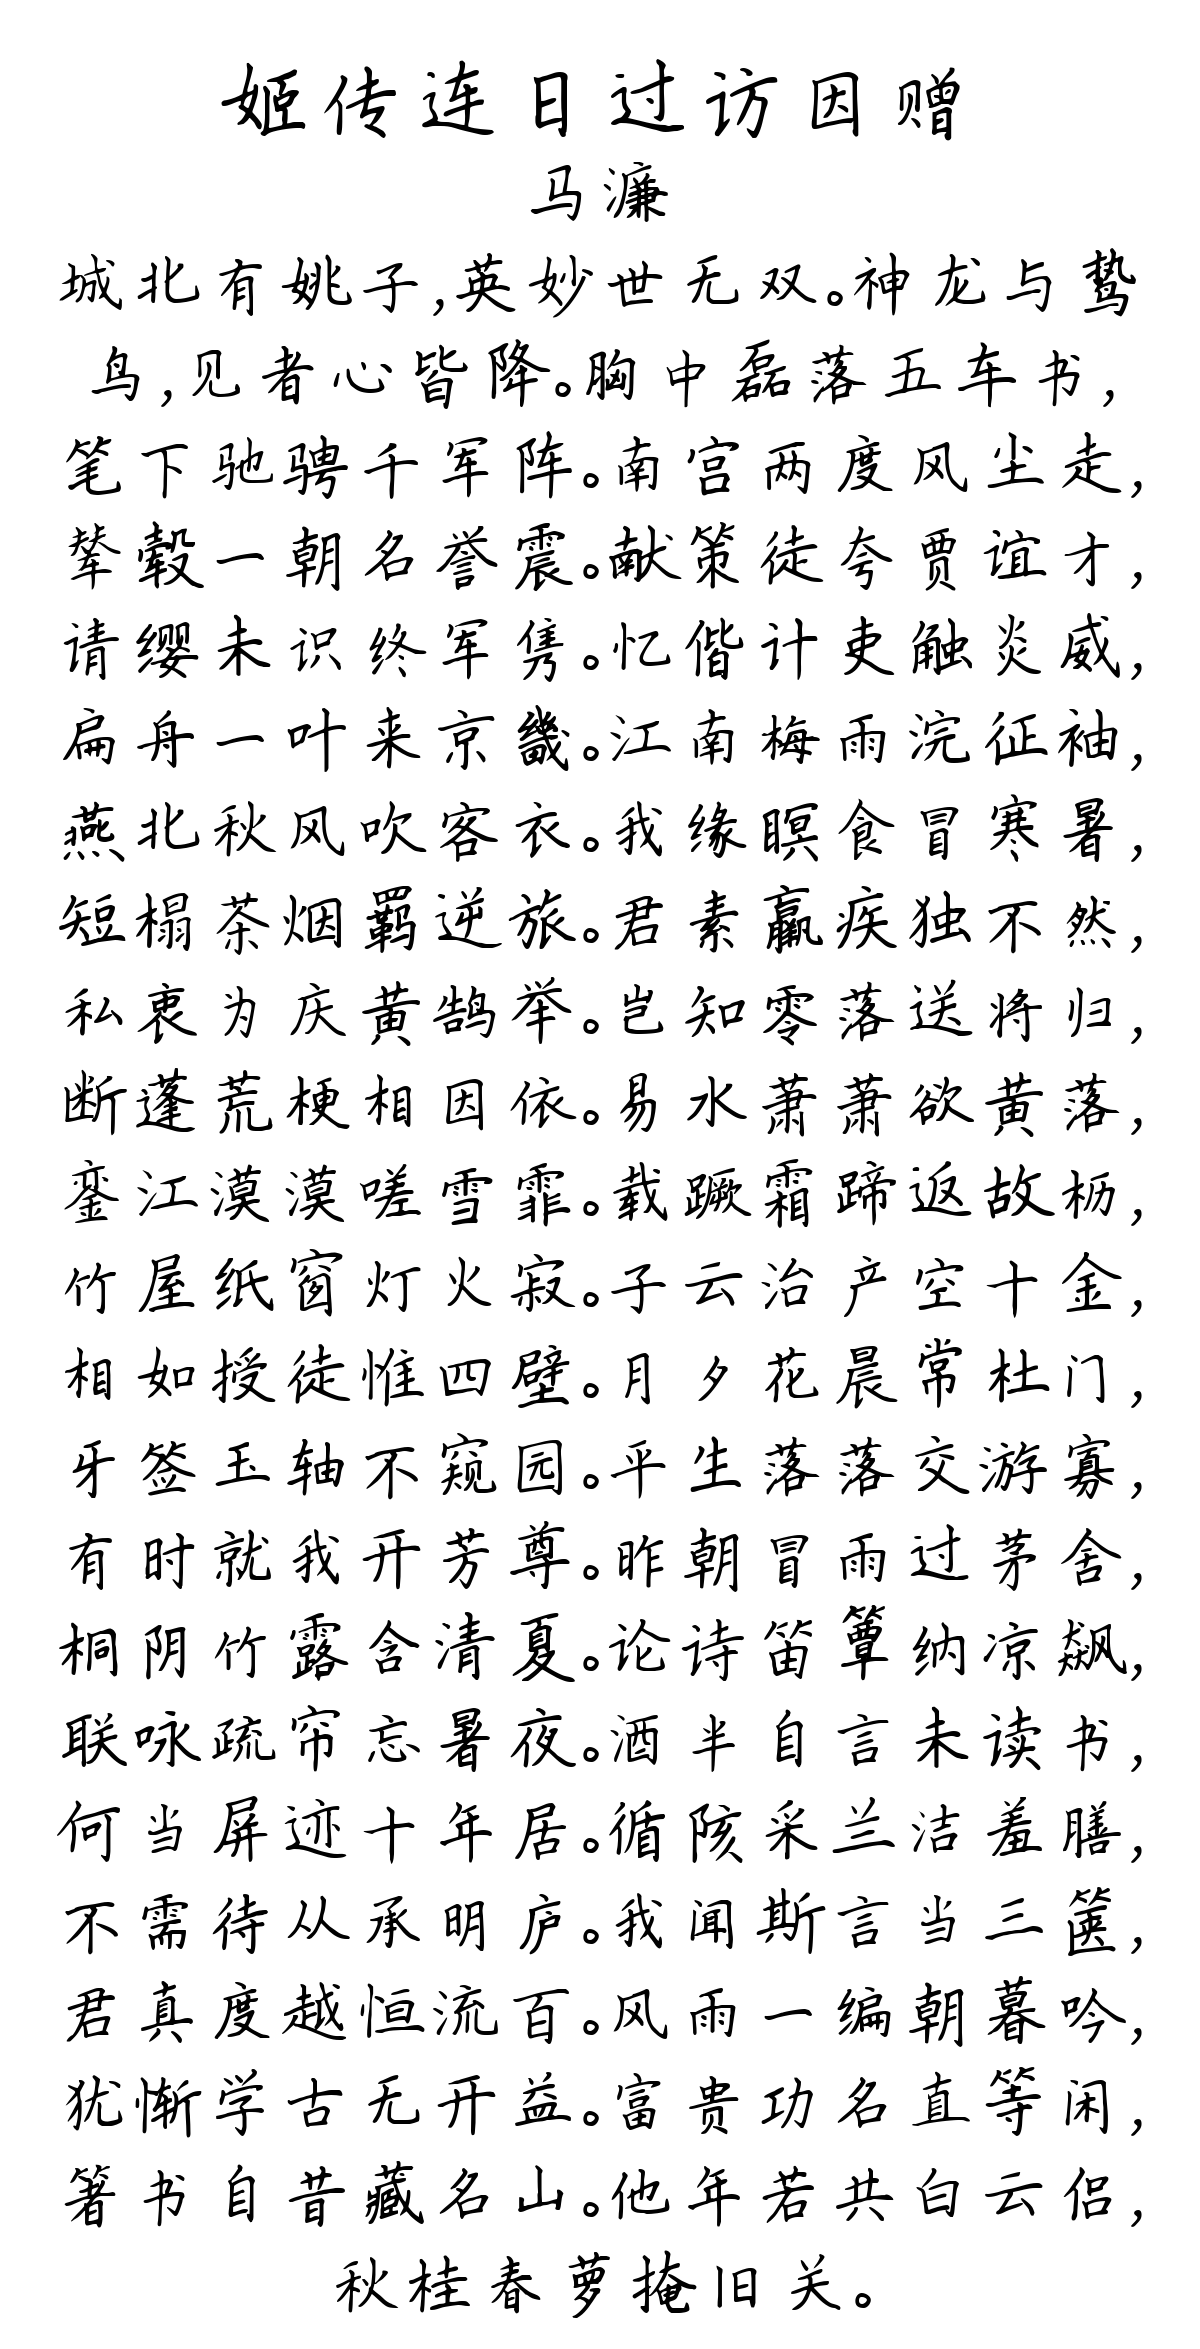 姬传连日过访因赠
马濂
城北有姚子,英妙世无双。神龙与鸷
鸟,见者心皆降。胸中磊落五车书,
笔下驰骋千军阵。南宫两度风尘走,
辇毂一朝名誉震。献策徒夸贾谊才,
请缨未识终军隽。忆偕计吏触炎威,
扁舟一叶来京畿。江南梅雨浣征袖,
燕北秋风吹客衣。我缘瞑食冒寒暑,
短榻茶烟羁逆旅。君素羸疾独不然,
私衷为庆黄鹄举。岂知零落送将归,
断蓬荒梗相因依。易水萧萧欲黄落,
銮江漠漠嗟雪霏。载蹶霜蹄返故枥,
竹屋纸窗灯火寂。子云治产空十金,
相如授徒惟四壁。月夕花晨常杜门,
牙签玉轴不窥园。平生落落交游寡,
有时就我开芳尊。昨朝冒雨过茅舍,
桐阴竹露含清夏。论诗笛簟纳凉飙,
联咏疏帘忘暑夜。酒半自言未读书,
何当屏迹十年居。循陔采兰洁羞膳,
不需待从承明庐。我闻斯言当三箧,
君真度越恒流百。风雨一编朝暮吟,
犹惭学古无开益。富贵功名直等闲,
箸书自昔藏名山。他年若共白云侣,
秋桂春萝掩旧关。